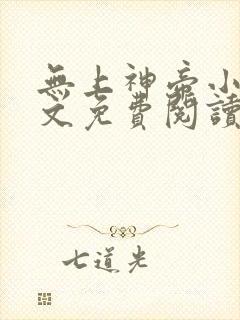 無上神帝小
文免費閱讀
七道光